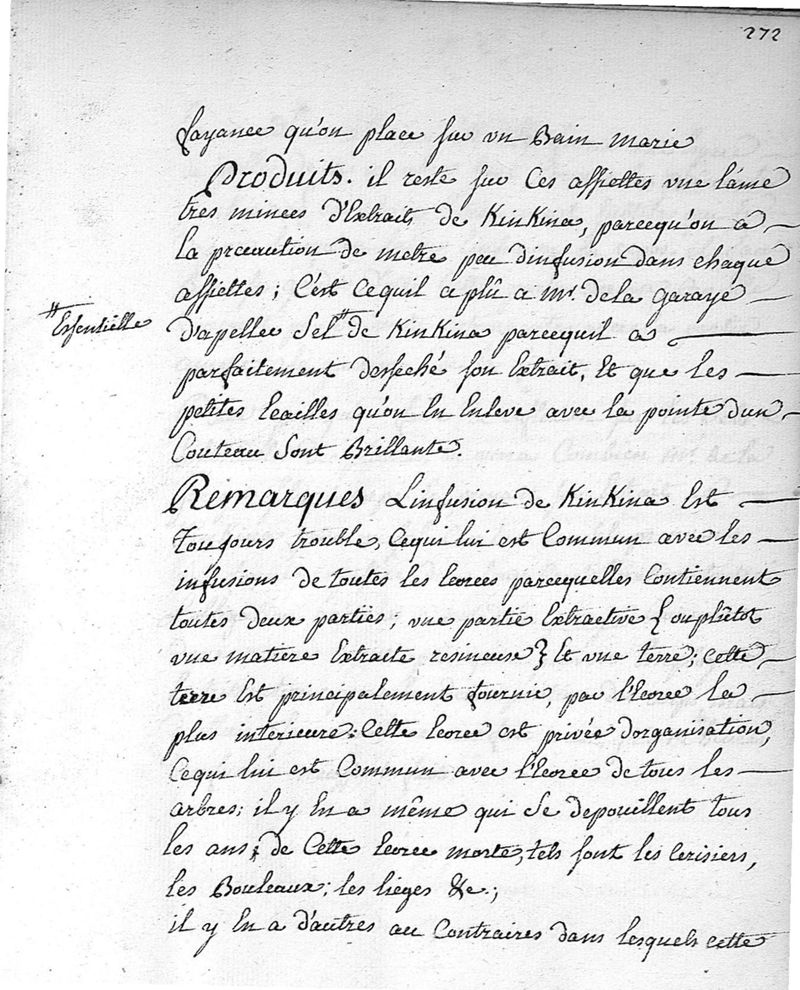 272
fayance qu'on place sur un Bain marie
Produits. il reste sur Ces assiettes une lame
tres minces d'Extraits de KinKina, parcequ'on a
la precaution de metre peu dinfusion dans chaque
assiettes; C'est Cequil a plû a Mr. dela Garaye
# Essentielle
D'apeller Sel # de KinKina parcequil a
parfaitement desseché son Extrait, Et que les
petites Ecailles qu'on En Enleve avec la pointe d'un
Couteau Sont Brillante.
Remarques Linfusion de KinKina Est
Toujours trouble, Cequi lui est Commun avec les
infusions de toutes les Ecorces parcequelles Contiennent
toutes deux parties; une partie Extractive { ou plûtot
une matiere Extracte resineuse } Et une terre; Cette
terre Est principalement fournie, par l'Ecorce la
plus interieure: Cette Ecorce est privée dorganisation,
Cequi lui est Commun avec l'Ecorce de tous les
arbres; il y En a même qui Se depouillent tous
les ans; de Cette Ecorce morte, tels sont les Cerisiers,
les Bouleaux; les lieges &c.;
il y En a d'autres au Contraires dans lesquels cette